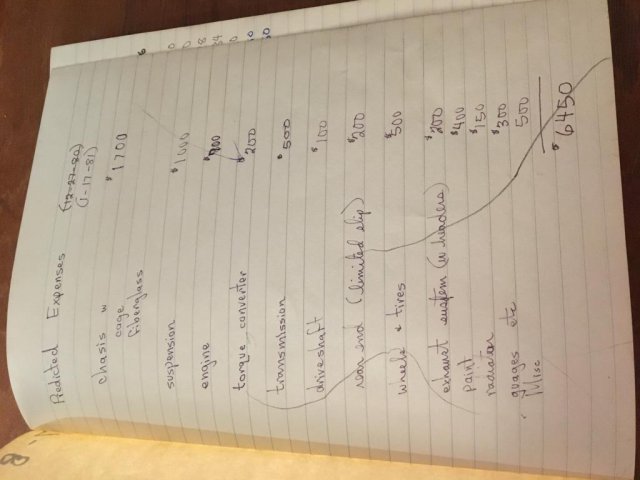 Predicted Expenses (12-27-80)
(1-17-81)
chasis w $1700
cage
Fiberglass
suspension $1000
engine $700
torque converter $200
transmission $500
driveshaft $100
rear end (limited slip) $200
wheels & tires $500
exhaust system (w headers) $200
paint $400
radiator $150
guages etc $300
Misc 500
$6450